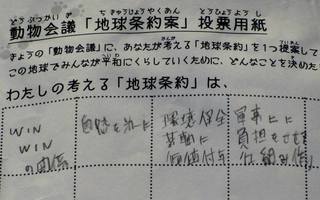 どうぶつかいぎ ちきゅうじょうやくあん とうひょうようし
動物会議「地球条約案」投票用紙
きょうの「動物会議」に、あなたが考える「地球条約」を1つ提案して
この地球でみんなが平和にくらしていくために、どんなことを決めた
わたしの考える「地球条約」は、
WIN
WIN
の関係
環境保全
基軸に
価値付与
軍事に
負担をさせる
仕組み作り